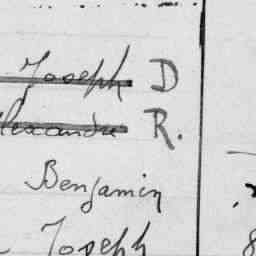 Joseph D
lexandre R.
Benjamin
Joseph